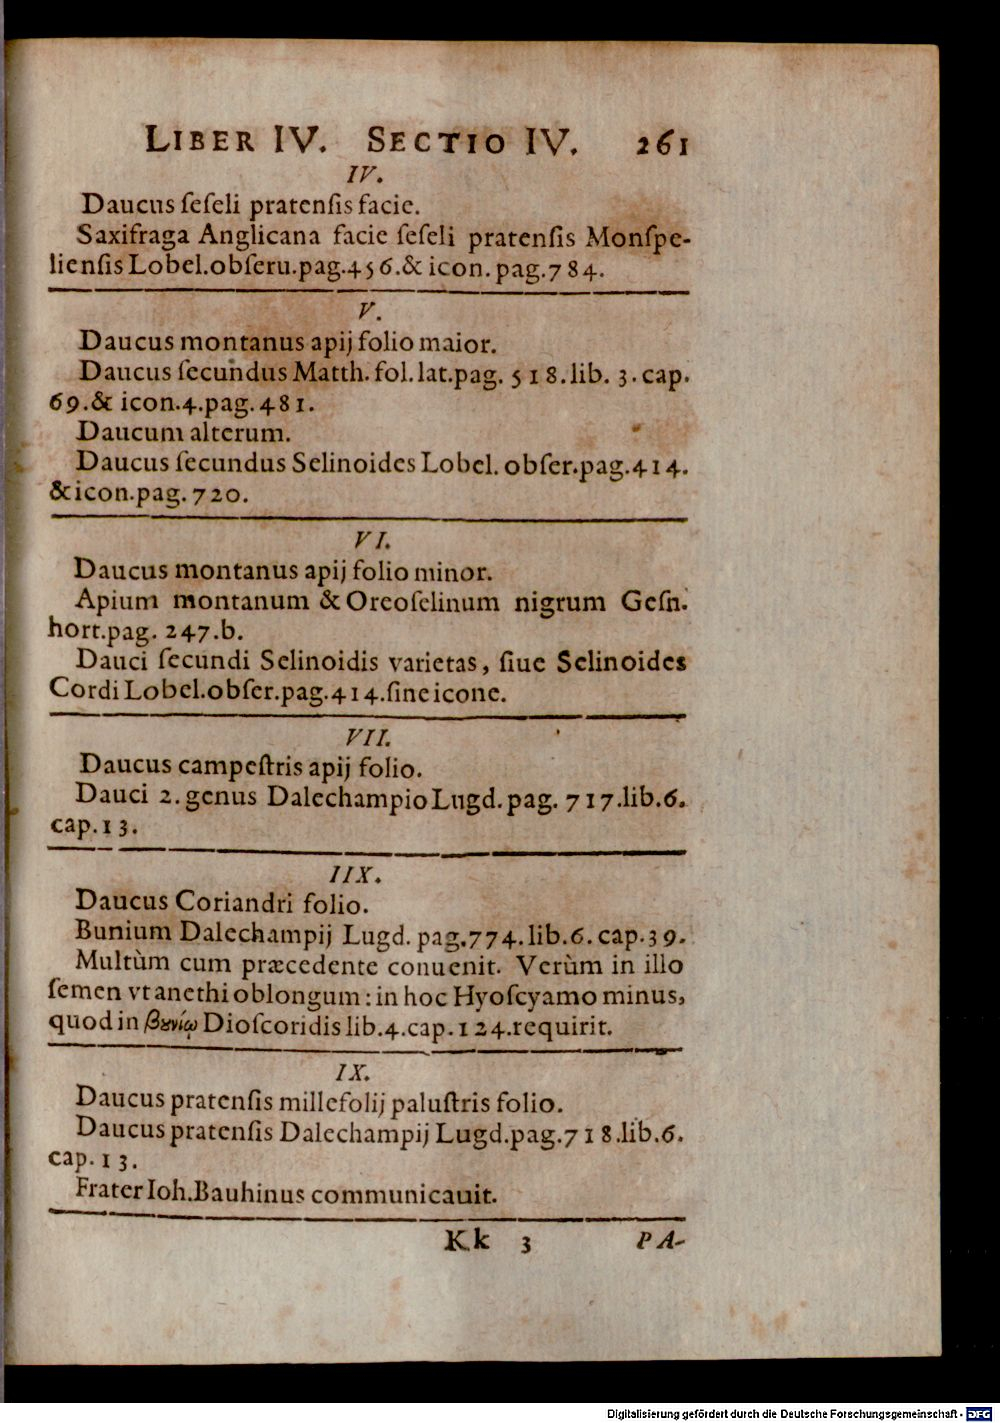 LIBER IV. SECTIO IV. 261
IV.
Daucus ſeſeli pratenſis facie.
Saxifraga Anglicana facie ſeſeli pratenſis Monſpe-
lienſis Lobel.obſeru.pag.456.& icon.pag.784.
V.
Daucus montanus apij folio maior.
Daucus ſecundus Matth. fol. lat.pag. 518.lib. 3. cap.
69.& icon.4.pag.481.
Daucum alterum.
Daucus ſecundus Selinoides Lobel. obſer.pag.414.
& icon.pag.720.
VI.
Daucus montanus apij folio minor.
Apium montanum & Oreoſelinum nigrum Geſn.
hort.pag. 247.b.
Dauci ſecundi Selinoidis varietas, ſiue Selinoides
Cordi Lobel.obſer.pag.414.ſine icone.
VII.
Daucus campeſtris apij folio.
Dauci 2. genus Dalechampio Lugd. pag. 717.lib.6.
cap.13.
IIX.
Daucus Coriandri folio.
Bunium Dalechampij Lugd. pag.774.lib.6.cap.39.
Multùm cum præcedente conuenit. Verùm in illo
ſemen vt anethi oblongum: in hoc Hyoſcyamo minus,
quod in βȣνίῳ Dioſcoridis lib.4.cap.124.requirit.
IX.
Daucus pratenſis millefolij paluſtris folio.
Daucus pratenſis Dalechampij Lugd.pag.718.lib.6.
cap. 13.
Frater Ioh.Bauhinus communicauit.
Kk 3 PA-
Digitalisierung gefördert durch die Deutsche Forschungsgemeinschaft - DFG